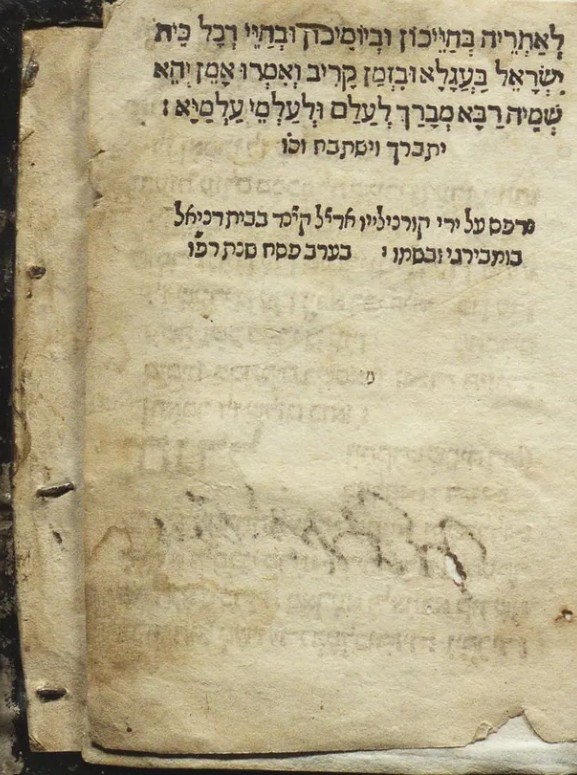 לְאַתְרֵיהּ בְּחַיֵּיכוֹן וּבְיוֹמֵיכוֹן וּבְחַיֵּי דְכָל בֵּית
יִשְׂרָאֵל בַּעֲגָלָא וּבִזְמַן קָרִיב וְאִמְרוּ אָמֵן יְהֵא
שְׁמֵיהּ רַבָּא מְבָרַךְ לְעָלַם וּלְעָלְמֵי עָלְמַיָּא :
יתברך וישתבח וכו
נדפס על ידי קורניליין אד״ל קי״נד בבית דניאל
בומבירגי ובשמו : בערב פסח שנת רפ״ו